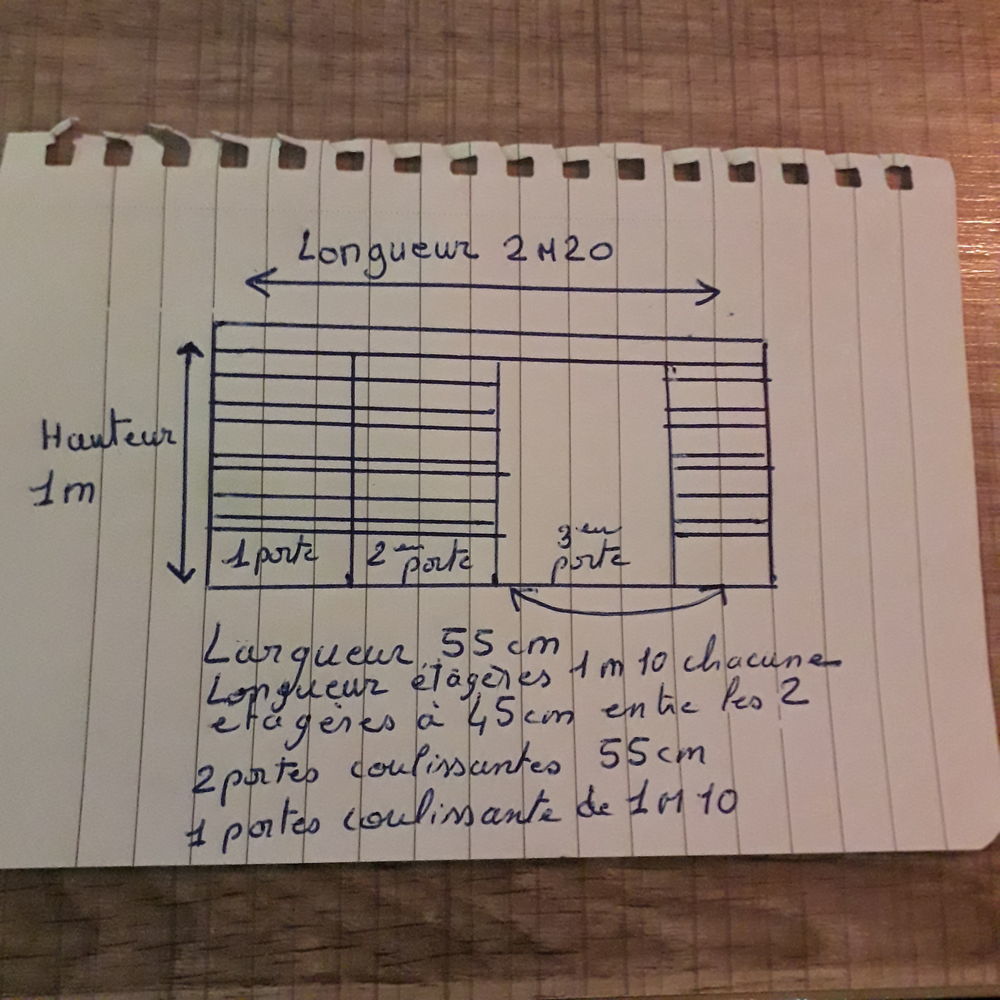 Longueur 2M20
Hauteur
1m
1 porte
2em porte
3em porte
Largueur 55cm
Longueur étagères 1m10 chacune
etagères à 45cm entre les 2
2 portes coulissantes 55cm
1 portes coulissante de 1M10